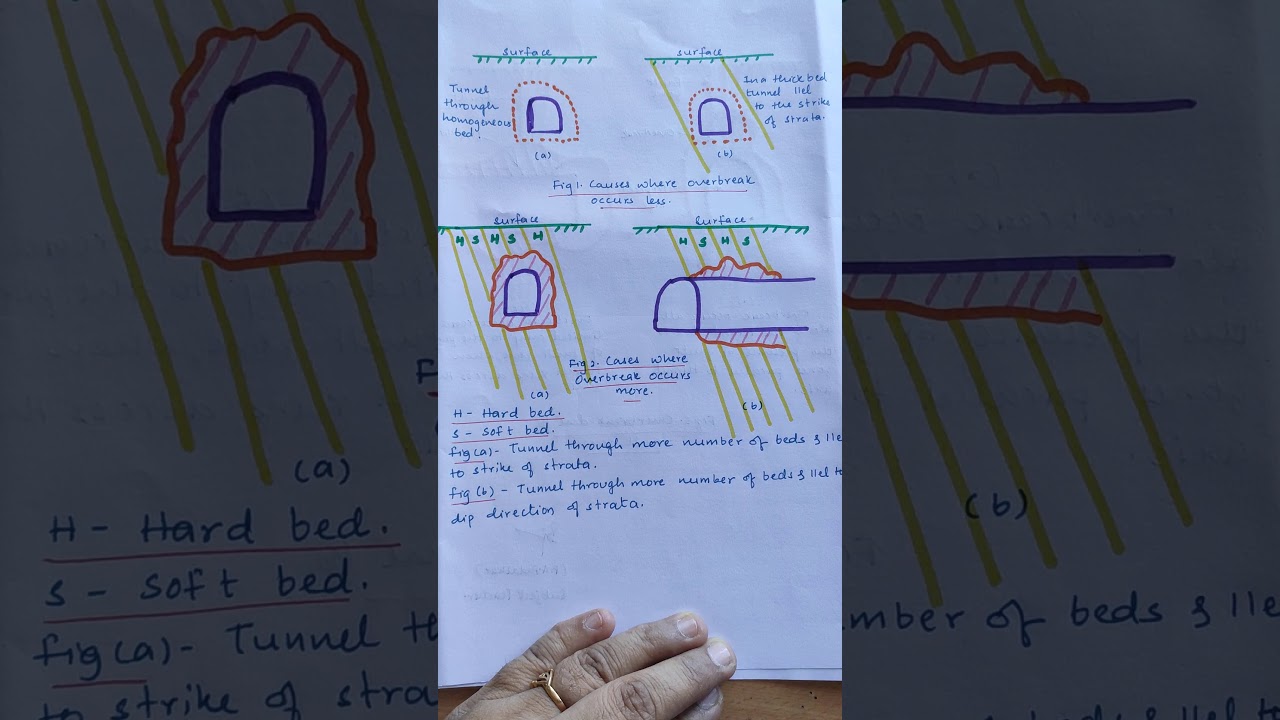 Surface
Tunnel
through
homogeneous
bed.
(a)
surface
In a thick bed
tunnel llel
to the strike
of strata.
(b)
Fig 1. Causes where overbreak
occurs less.
surface
H S H S H
(a)
Surface
H S H S
(b)
Fig 2. Cases where
Overbreak occurs
more.
H - Hard bed.
S - Soft bed.
fig(a) - Tunnel through more number of beds & lle
to strike of strata.
fig (b) - Tunnel through more number of beds & llel to
dip direction of strata.
(a)
H - Hard bed.
S - Soft bed.
fig(a) - Tunnel th
to strike of stra
(b)
mber of beds & lle